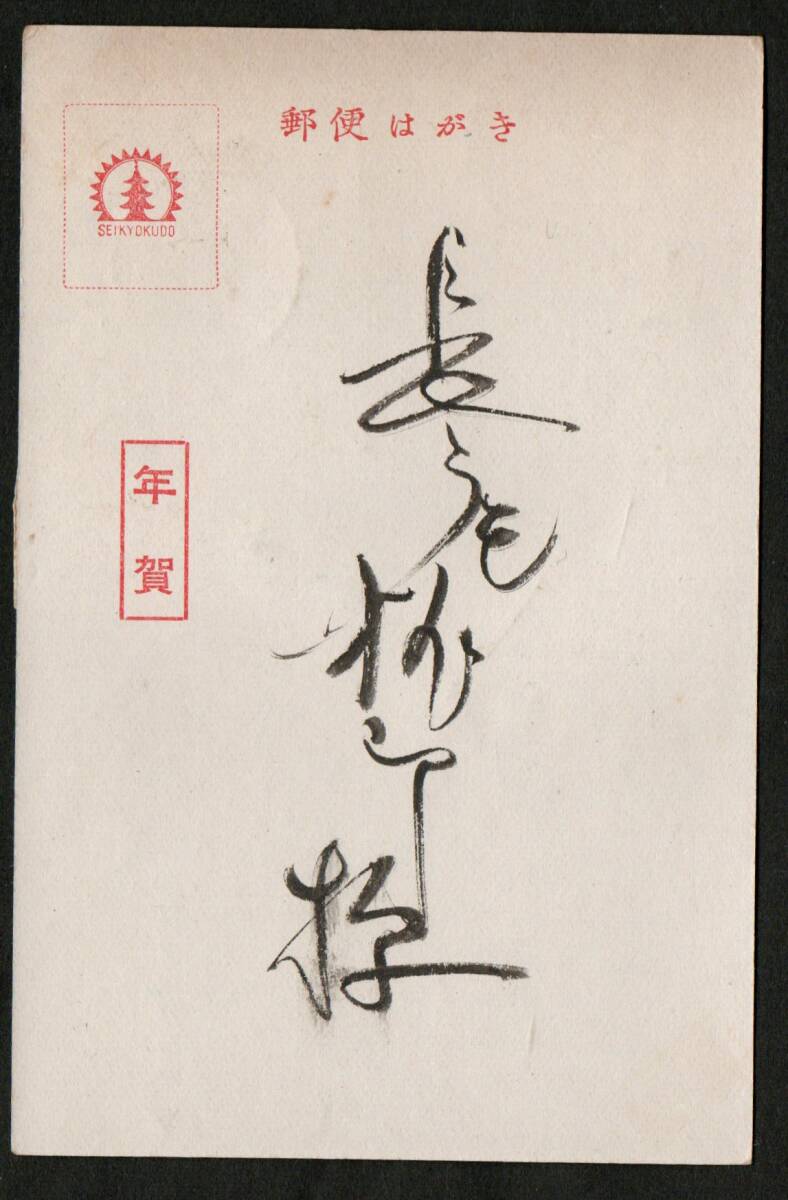 郵便はがき
SEIKYOKUDO
年賀
長尾桃郎様